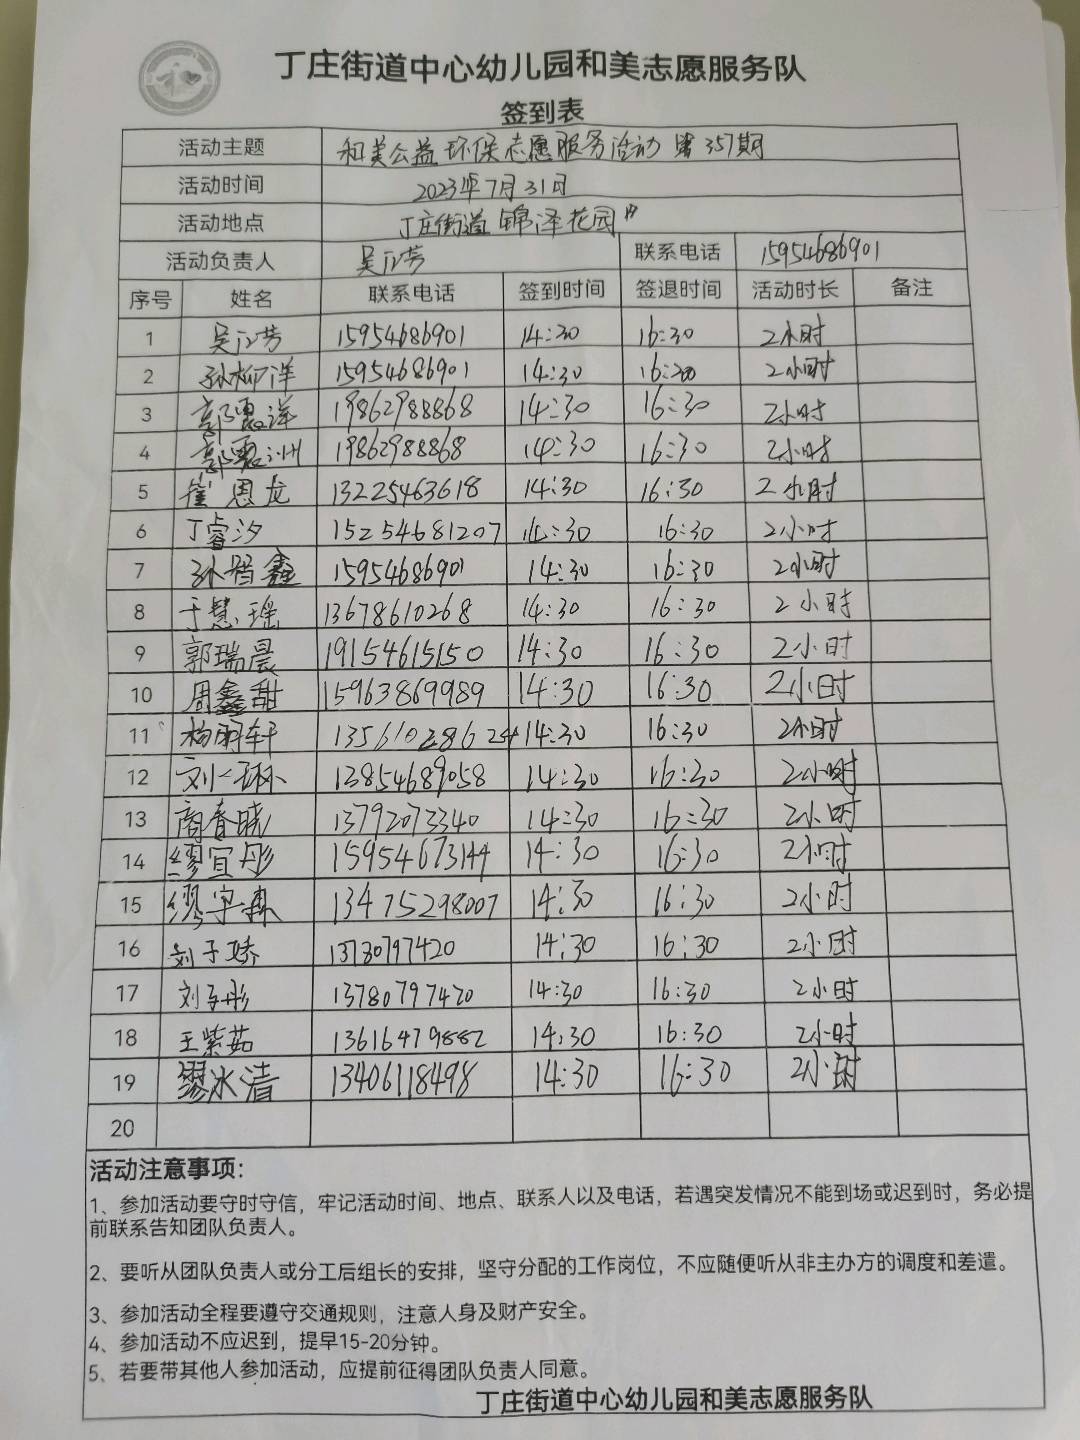 丁庄街道中心幼儿园和美志愿服务队
签到表
活动主题 和美公益环保志愿服务活动 第357期
活动时间 2023年7月31日
活动地点 丁庄街道锦泽花园内
活动负责人 吴江芳 联系电话 15954686901
序号 姓名 联系电话 签到时间 签退时间 活动时长 备注
1 吴江芳 15954686901 14:30 16:30 2小时
2 孙柳洋 15954686901 14:30 16:30 2小时
3 郭惠洋 19862988868 14:30 16:30 2小时
4 郭惠洲 19862988868 14:30 16:30 2小时
5 崔恩龙 13225463618 14:30 16:30 2小时
6 丁睿汐 15254681207 14:30 16:30 2小时
7 孙智鑫 15954686901 14:30 16:30 2小时
8 于慧瑶 13678610268 14:30 16:30 2小时
9 郭瑞晨 19154615150 14:30 16:30 2小时
10 周鑫甜 15963869989 14:30 16:30 2小时
11 杨明轩 14:30 16:30 2小时
12 刘一 13854689058 14:30 16:30 2小时
13 商春晓 13792073340 14:30 16:30 2小时
14 缪宜彤 15954673144 14:30 16:30 2小时
15 缪宇 13475298007 14:30 16:30 2小时
16 刘子娇 13780797420 14:30 16:30 2小时
17 刘子彤 13780797420 14:30 16:30 2小时
18 王紫茹 13616479882 14:30 16:30 2小时
19 缪冰清 13406118498 14:30 16:30 2小时
20
活动注意事项：
1、参加活动要守时守信，牢记活动时间、地点、联系人以及电话，若遇突发情况不能到场或迟到时，务必提
前联系告知团队负责人。
2、要听从团队负责人或分工后组长的安排，坚守分配的工作岗位，不应随便听从非主办方的调度和差遣。
3、参加活动全程要遵守交通规则，注意人身及财产安全。
4、参加活动不应迟到，提早15-20分钟。
5、若要带其他人参加活动，应提前征得团队负责人同意。
丁庄街道中心幼儿园和美志愿服务队